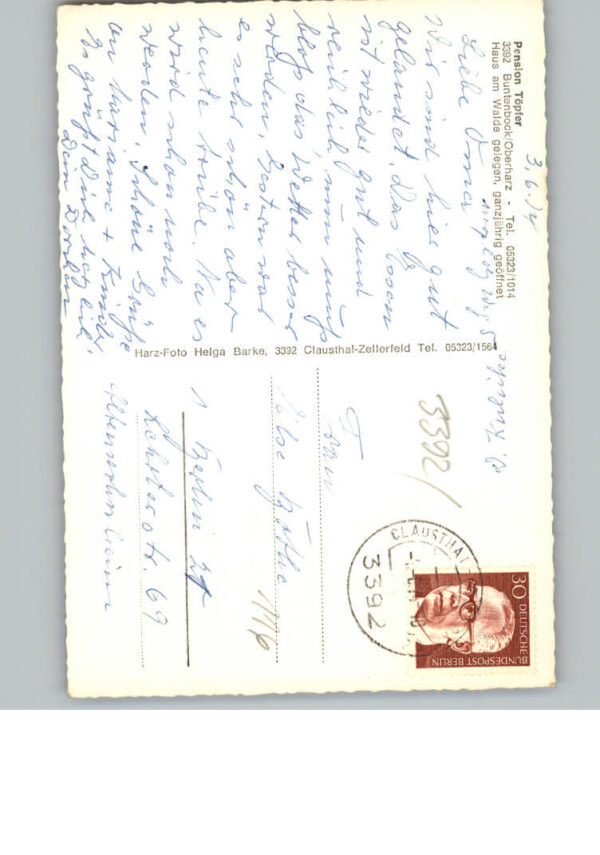 Pension Töpfer
3392 Buntenbock/Oberharz - Tel. 05323/1014
Haus am Walde gelegen, ganzjährig geöffnet
3.6.74
Liebe Oma,
Wir sind hier gut
gelandet. Das Essen
ist wieder gut und
reichlich nun muß
bloß das Wetter besser
werden. Gestern war
es sehr schön aber
heute trübe. Na es
wird schon noch
werden. Schöne Grüße
an Marianne + Kinder.
Es grüßt Dich herzlich
Dein
Harz-Foto Helga Barke, 3392 Clausthal-Zellerfeld Tel. 05323/1564
3392/
Frau
Else
1 Berlin 21
Lehrterstr. 69
Altenwohnheim
1116
CLAUSTHAL-
3392
30
DEUTSCHE
BUNDESPOST BERLIN